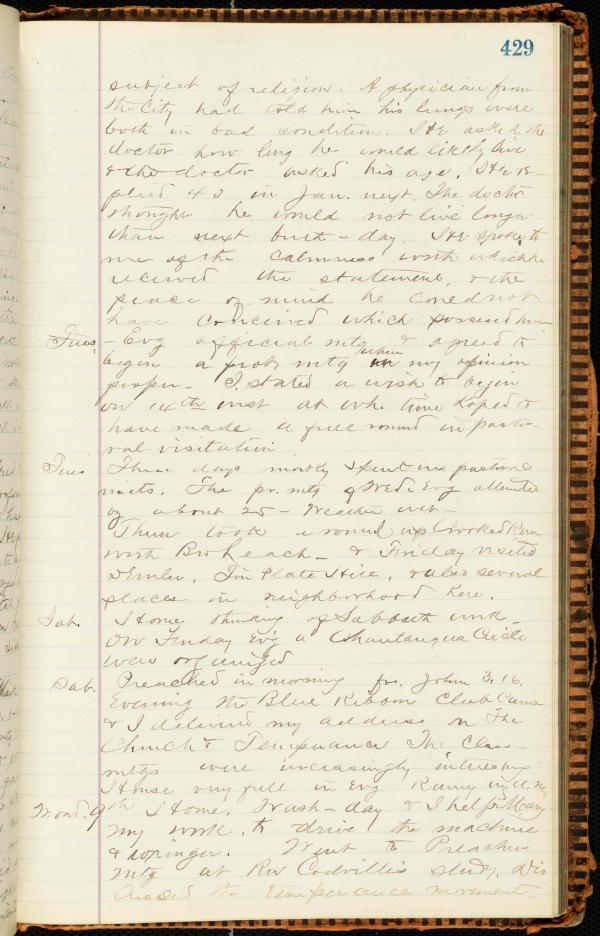 429
subject of religion. A physician from
the City had told him his lungs were
both in bad condition. He asked the
doctor how long he would likely live
& the doctor asked his age. He re-
plied 40 in Jan. next. The doctor
thought he would not live longer
than next birth-day. He spoke to
me of the calmness with which he
received the statement, & the
peace of mind he could not
have conceived which possessed him
Tues. - Evg official mtg & agreed to
begin a prot. mtg when in my opinion
proper - I stated a wish to begin
on 14th inst at wh. time hoped to
have made a full round in pasto-
ral visitation
Tues These days mostly spent in pastoral
visits. The pr. mtg of Wed. Evg attended
by about 25 - Weather wet -
Thurs took a round up Crooked Run
with Bro Leach - & Friday visited
Tin Plate Hill, & also several
places in neighborhood here.
Sat. Home thinking of Sabbath work -
On Friday Evg a Chautauqua Circle
was organized
Sab. Preached in morning fr. John 3.16.
Evening the Blue Ribbon Club Came
& I delivered my address on The
Church & Temperance The Class-
mtgs were increasingly interesting
House very full in Evg Rainy in A.M.
Mond. 9th Home. Wash-day & I help Mary.
My work, to drive the machine
& wringer. Went to Preachers
mtg at Rev study. Dis
cussed the temperance movement -